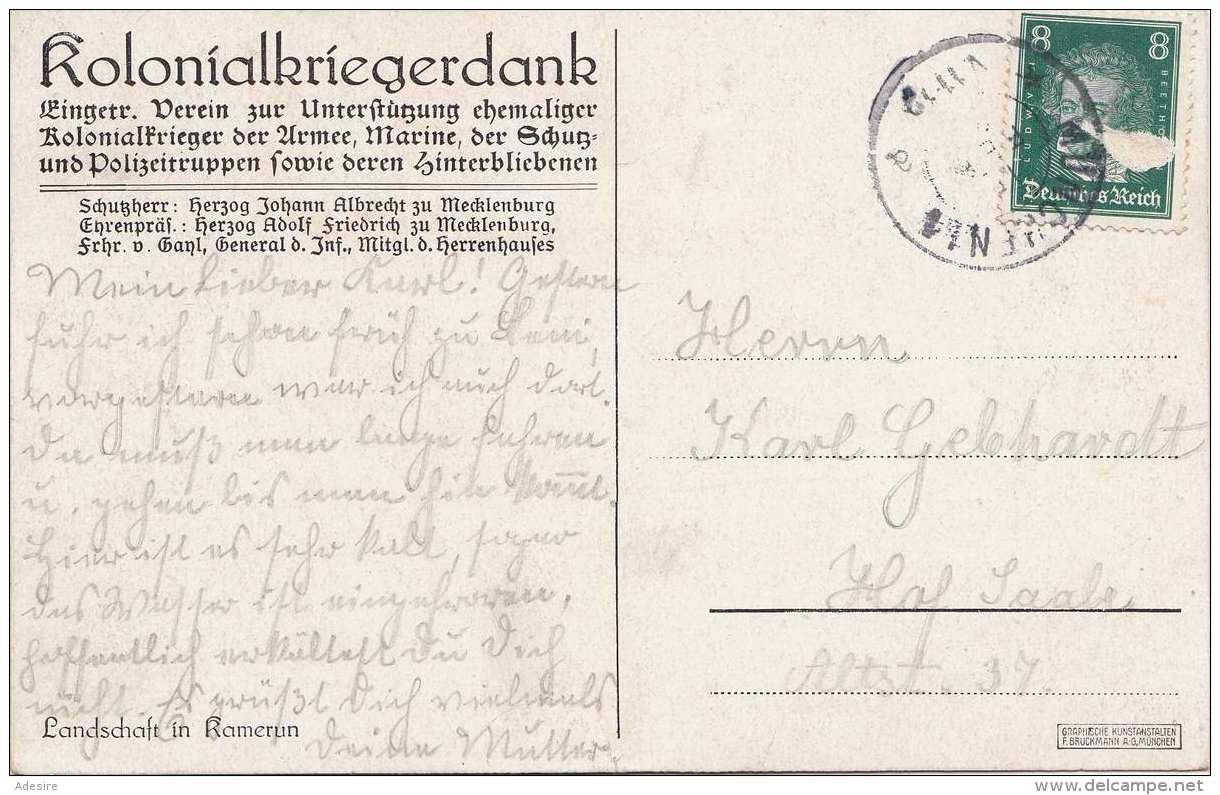 Kolonialkriegerdank
Eingetr. Verein zur Unterstützung ehemaliger
Kolonialkrieger der Armee, Marine, der Schutz-
und Polizeitruppen sowie deren Hinterbliebenen
Schutzherr: Herzog Johann Albrecht zu Mecklenburg
Ehrenpräs.: Herzog Adolf Friedrich zu Mecklenburg,
Frhr. v. Gayl, General d. Inf., Mitgl. d. Herrenhauses
Mein Lieber Karl! Gestern
fuhr ich schon früh zu Leni,
vorgestern war ich auch dort.
Da muß man lange fahren
u. gehen bis man hin kommt.
Hier ist es sehr kalt, sogar
das Wasser ist eingefroren,
hoffentlich erkältest Du Dich
nicht. Es grüßt Dich vielmals
Deine Mutter.
Landschaft in Kamerun
8 8
LUDWIG VAN BEETHOVEN
Deutsches Reich
Herrn
Karl Gebhardt
Hof Saale
Altst. 37.
GRAPHISCHE KUNSTANSTALTEN
F. BRUCKMANN A-G, MÜNCHEN
Adesire
www.delcampe.net